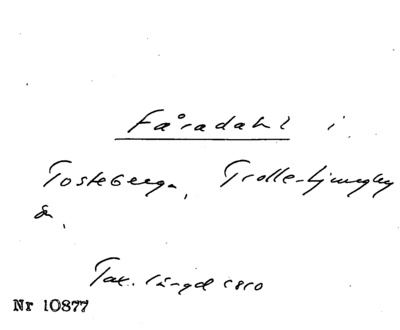 Fåradahl i
Tosteberga, Trolle-Ljungby
sn.
Tax. längd 1810
Nr 10877